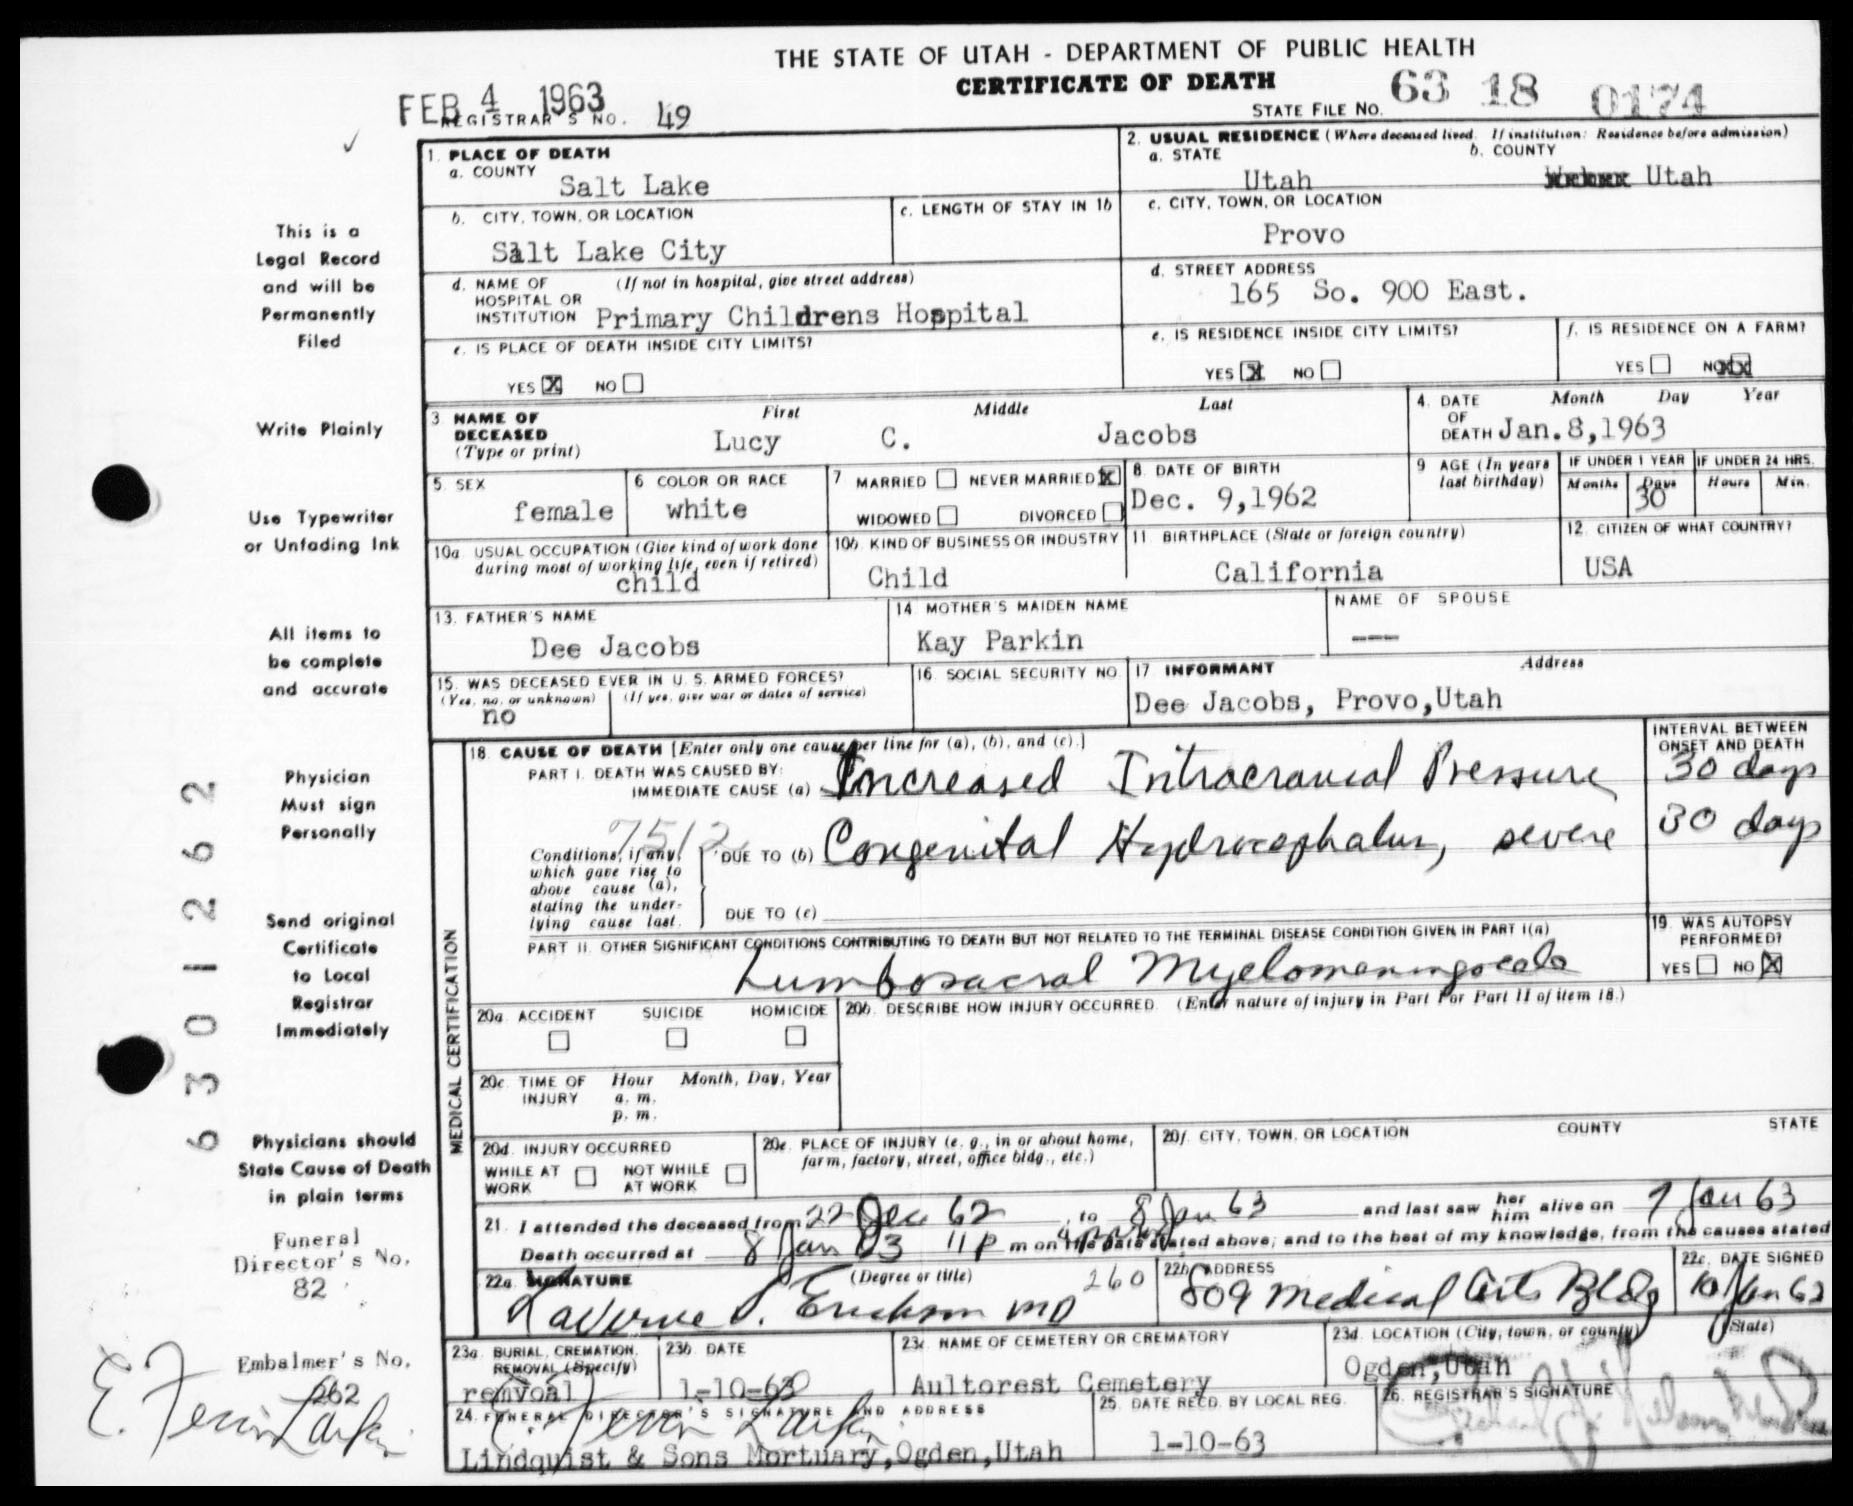 THE STATE OF UTAH - DEPARTMENT OF PUBLIC HEALTH
CERTIFICATE OF DEATH
FEB 4 1963
REGISTRAR'S NO. 49
STATE FILE NO. 63 18 0174
This is a
Legal Record
and will be
Permanently
Filed
Write Plainly
Use Typewriter
or Unfading Ink
All items to
be complete
and accurate
Physician
Must sign
Personally
Send original
Certificate
to Local
Registrar
Immediately
Physicians should
State Cause of Death
in plain terms
Funeral
Director's No.
82
Embalmer's No.
262
E. Ferrin Larkin
6301262
1. PLACE OF DEATH
a. COUNTY
Salt Lake
2. USUAL RESIDENCE (Where deceased lived. If institution: Residence before admission)
a. STATE b. COUNTY
Utah Utah
b. CITY, TOWN, OR LOCATION
Salt Lake City
c. LENGTH OF STAY IN 1b
c. CITY, TOWN, OR LOCATION
Provo
d. NAME OF (If not in hospital, give street address)
HOSPITAL OR
INSTITUTION Primary Childrens Hospital
d. STREET ADDRESS
165 So. 900 East.
e. IS PLACE OF DEATH INSIDE CITY LIMITS?
YES X NO
e. IS RESIDENCE INSIDE CITY LIMITS?
YES X NO
f. IS RESIDENCE ON A FARM?
YES NO XX
3 NAME OF First Middle Last
DECEASED
(Type or print)
Lucy C. Jacobs
4. DATE Month Day Year
OF
DEATH Jan.8,1963
5. SEX
female
6 COLOR OR RACE
white
7 MARRIED NEVER MARRIED X
WIDOWED DIVORCED
8. DATE OF BIRTH
Dec. 9,1962
9 AGE (In years
last birthday)
IF UNDER 1 YEAR IF UNDER 24 HRS.
Months Days Hours Min.
30
10a. USUAL OCCUPATION (Give kind of work done
during most of working life, even if retired)
child
10b. KIND OF BUSINESS OR INDUSTRY
Child
11 BIRTHPLACE (State or foreign country)
California
12. CITIZEN OF WHAT COUNTRY?
USA
13. FATHER'S NAME
Dee Jacobs
14 MOTHER'S MAIDEN NAME
Kay Parkin
NAME OF SPOUSE
---
15. WAS DECEASED EVER IN U. S. ARMED FORCES?
(Yes, no, or unknown) (If yes, give war or dates of service)
no
16. SOCIAL SECURITY NO.
17 INFORMANT Address
Dee Jacobs, Provo,Utah
MEDICAL CERTIFICATION
18. CAUSE OF DEATH [Enter only one cause per line for (a), (b), and (c).]
PART I. DEATH WAS CAUSED BY:
IMMEDIATE CAUSE (a) Increased Intracranial Pressure
INTERVAL BETWEEN
ONSET AND DEATH
30 days
7512
Conditions, if any,
which gave rise to
above cause (a),
stating the under-
lying cause last.
DUE TO (b) Congenital Hydrocephalus, severe
30 days
DUE TO (c)
PART II. OTHER SIGNIFICANT CONDITIONS CONTRIBUTING TO DEATH BUT NOT RELATED TO THE TERMINAL DISEASE CONDITION GIVEN IN PART I(a)
Lumbosacral Myelomeningocele
19. WAS AUTOPSY
PERFORMED?
YES NO X
20a. ACCIDENT SUICIDE HOMICIDE
20b. DESCRIBE HOW INJURY OCCURRED. (Enter nature of injury in Part I or Part II of item 18.)
20c. TIME OF Hour Month, Day, Year
INJURY a. m.
p. m.
20d. INJURY OCCURRED
WHILE AT NOT WHILE
WORK AT WORK
20e. PLACE OF INJURY (e. g., in or about home,
farm, factory, street, office bldg., etc.)
20f. CITY, TOWN, OR LOCATION COUNTY STATE
21. I attended the deceased from 22 Dec 62 to 8 Jan 63 and last saw her him alive on 7 Jan 63
Death occurred at 8 Jan 63 11 P m on the date stated above; and to the best of my knowledge, from the causes stated
22a. SIGNATURE (Degree or title) 260
LaVerne S. Erickson MD
22b. ADDRESS
809 Medical Arts Bldg
22c. DATE SIGNED
10 Jan 63
23a. BURIAL, CREMATION,
REMOVAL (Specify)
remvoal
23b. DATE
1-10-63
23c. NAME OF CEMETERY OR CREMATORY
Aultorest Cemetery
23d. LOCATION (City, town, or county) (State)
Ogden,Utah
24. FUNERAL DIRECTOR'S SIGNATURE AND ADDRESS
E. Ferrin Larkin
Lindquist & Sons Mortuary,Ogden,Utah
25. DATE REC'D. BY LOCAL REG.
1-10-63
26. REGISTRAR'S SIGNATURE